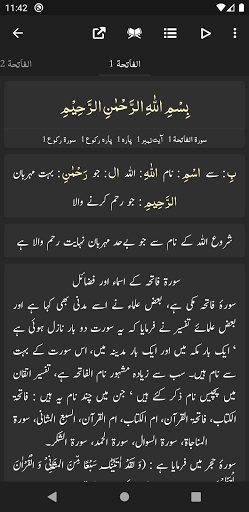 11:42
الفاتحة 1
الفاتحة 2
بِسْمِ اللّٰهِ الرَّحْمٰنِ الرَّحِیْمِ
سورۃ الفاتحۃ 1 آیت نمبر 1 پارہ 1 پارہ رکوع 1 سورۃ رکوع 1
بِ: سے اسْمِ: نام اللّٰهِ: اللہ ال: جو رَحْمٰنِ: بہت مہربان
الرَّحِيمِ: جو رحم کرنے والا
شروع اللہ کے نام سے جو بےحد مہربان نہایت رحم والا ہے
سورۃ فاتحہ کے اسماء اور فضائل
سورۃ فاتحہ مکی ہے، بعض علماء نے اسے مدنی بھی کہا ہے اور
بعض علمائے تفسیر نے فرمایا کہ یہ سورت دو بار نازل ہوئی ہے
، ایک بار مکہ میں اور ایک بار مدینہ میں، اس سورت کے بہت
سے نام ہیں۔ سب سے زیادہ مشہور نام الفاتحہ ہے، تفسیر اتقان
میں پچیس نام ذکر کئے ہیں ، جن میں چند نام یہ ہیں : فاتحۃ
الکتاب، فاتحۃ القرآن، ام الکتاب، ام القرآن، السبع المثانی، سورۃ
المناجاۃ، سورۃ السوال، سورۃ الحمد، سورۃ الشکر۔
سورۃ حجر میں فرمایا ہے : (وَ لَقَدْ اٰتَیْنٰكَ سَبْعًا مِّنَ الْمَثَانِیْ وَ الْقُرْاٰنَ